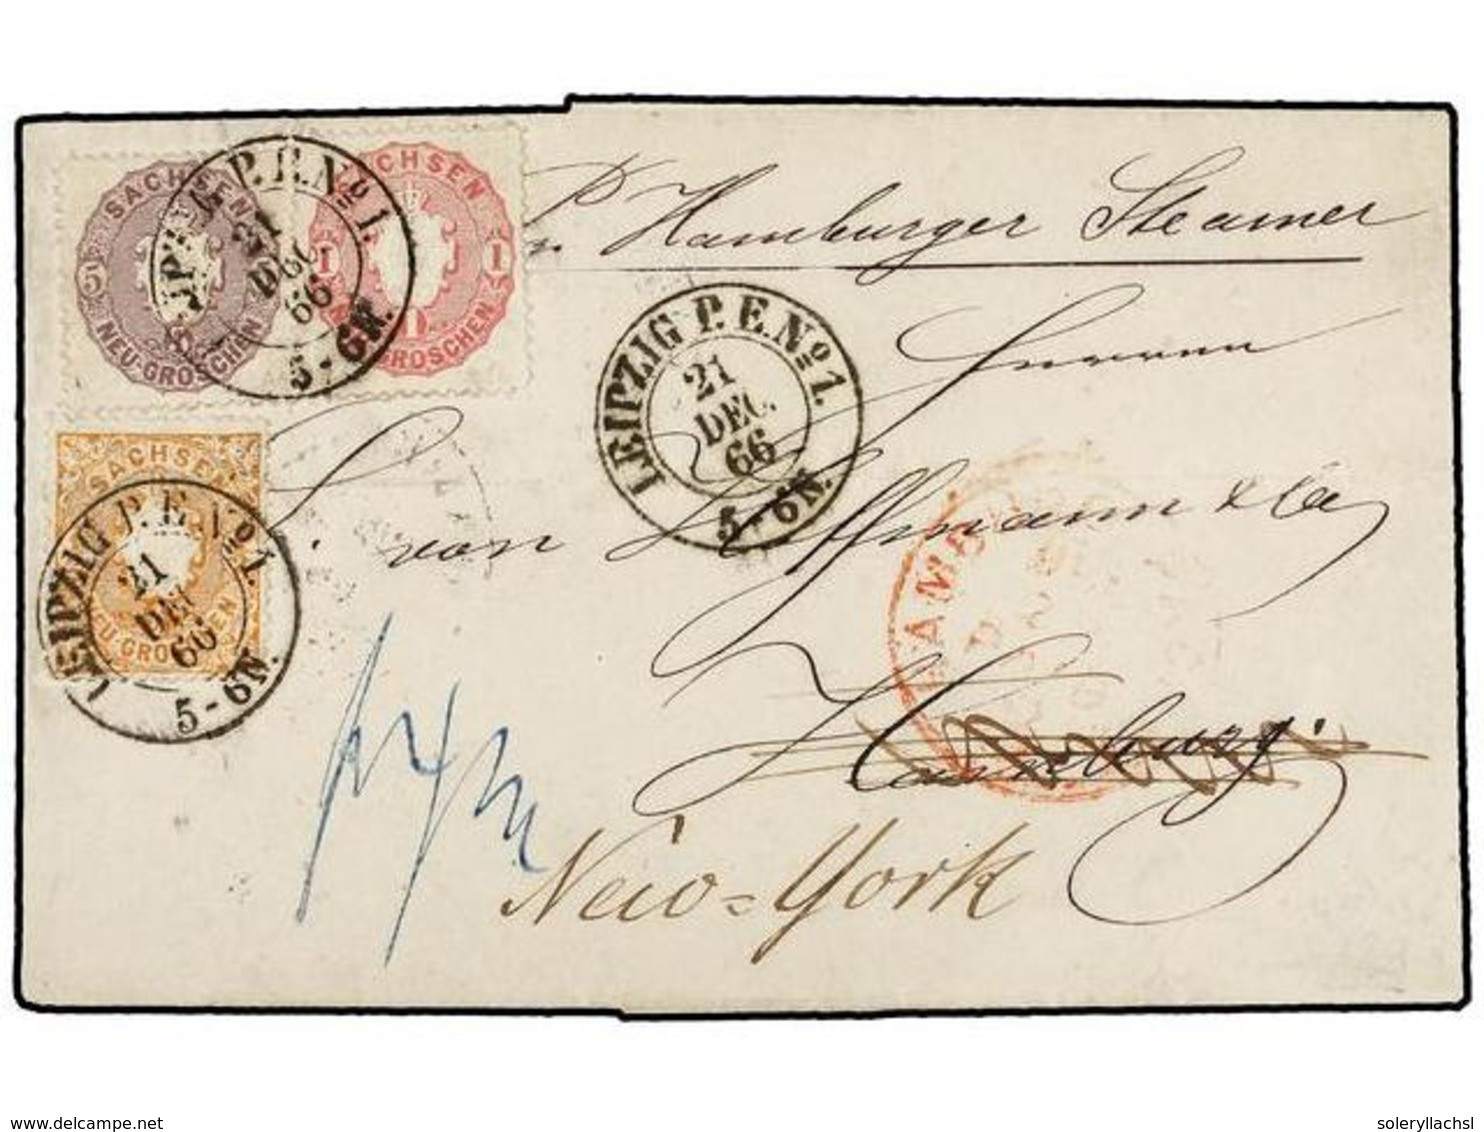 SACHSEN
5
NEU-GROSCHEN
SACHSEN
1 1
GROSCHEN
LEIPZIG P.E.No 1.
21
DEC.
66
5-6N.
pr Hamburger Steamer
LEIPZIG P.E.No 1.
21
DEC.
66
5-6N.
Herren
SACHSEN
NEU-GROSCHEN
LEIPZIG P.E.No 1.
21
DEC
66
5-6N.
von & Co
HAMB
Hamburg.
New=York
www.delcampe.net
soleryllachsl